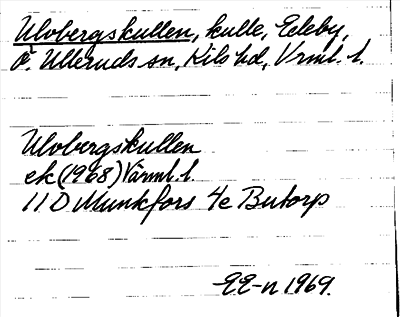 Ulvbergskullen, kulle, Edeby,
Ö. Ulleruds sn, Kils hd, Vrml. l.
Ulvbergskullen
ek (1968) Värml. l.
11 D Munkfors 4e Butorp
E.E-n 1969.